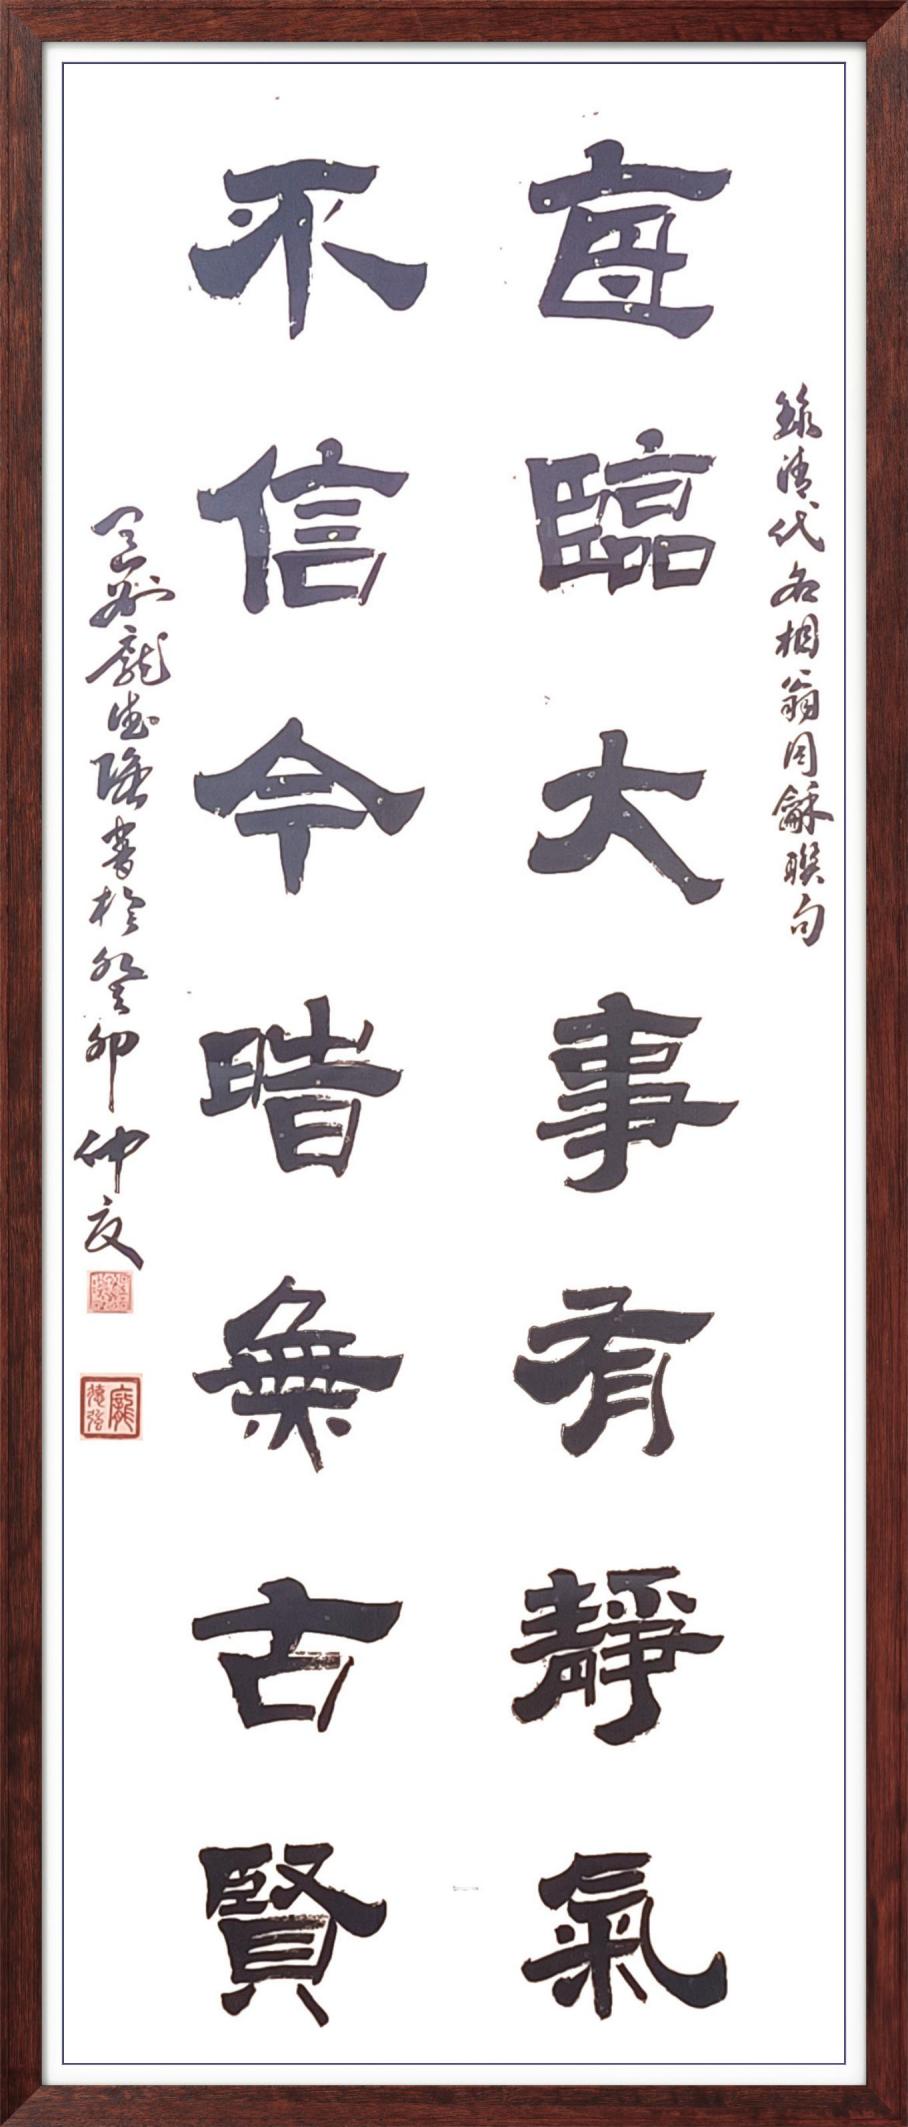 錄清代名相翁同龢聯句
每臨大事有靜氣
不信今時無古賢
龐德書於癸卯仲夏
龐德